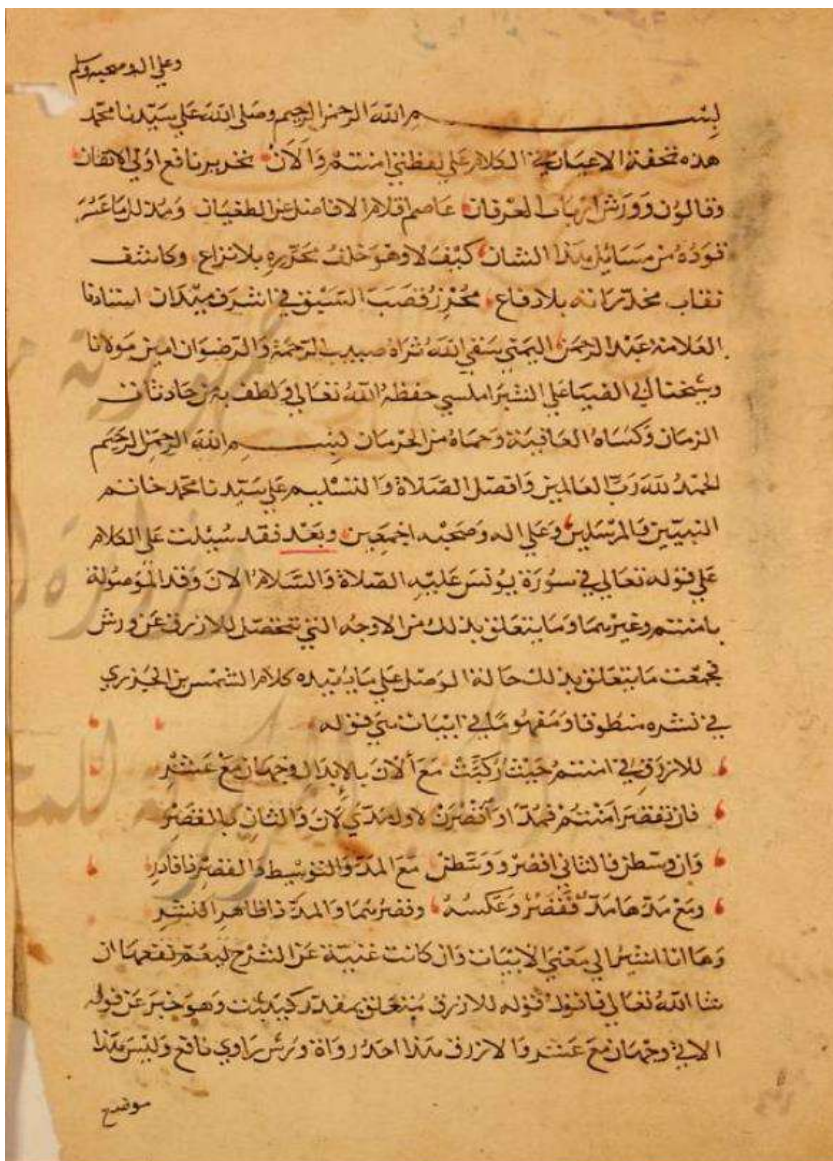 وعلي اله وصحبه وسلم
بسم الله الرحمن الرحيم وصلى الله على سيدنا محمد
هذه تحفة الاعيان في الكلام علي لفظتي امنتم والان تحرير نافع اولي الاتقان
وقالون وورش ارباب العرفان عاصم اقلام الافاضل عن الطغيان ومذلل ما عسر
قوده من مسائل هذا الشان كيف لا وهو خلف محرره بلا نزاع وكاشف
نقاب مخدراته بلا دفاع محرز قصب السبق في اشرف ميدان استاذنا
العلامة عبد الرحمن اليمني سقي الله ثراه صبيب الرحمة والرضوان امين مولانا
وشيخنا ابي الضيا علي الشبراملسي حفظه الله تعالي ولطف به من حادثات
الزمان وكساه العافية وحماه من الحرمان بسم الله الرحمن الرحيم
الحمد لله رب العالمين وافضل الصلاة والتسليم علي سيدنا محمد خاتم
النبيين والمرسلين وعلي اله وصحبه اجمعين وبعد فقد سيلت علي الكلام
علي قوله تعالي في سورة يونس عليه الصلاة والسلام الان وقد الموصولة
بامنتم وغيرهما وما يتعلق بذلك من الاوجه التي تتحصل للازرق عن ورش
فجمعت ما يتعلق بذلك حالة الوصل علي ما يفيده كلام الشمس بن الجزري
في نشره منطوقا ومفهوما في ابيات هي قوله
للازرق في امنتم حيث ركبت مع ألان بالإبدال وجهان مع عشر
فان تقصر امنتم فمدا او اقصرن لاول مدي لان والثان بالقصر
وان وسطن فالثاني اقصر ووسطن مع المد والتوسيط والقصر فادر
ومع مدها مد فقصر وعكسه وقصرهما والمد ذا ظاهر النشر
وها انا اشير الي معني الابيات وان كانت غنية عن الشرح ليعم نفعها ان
شا الله تعالي فاقول قوله للازرق متعلق بمقدر كيثبت وهو خبر عن قوله
الاتي وجهان مع عشر والازرق هذا احد رواة ورش راوي نافع وليس هذا
موضع